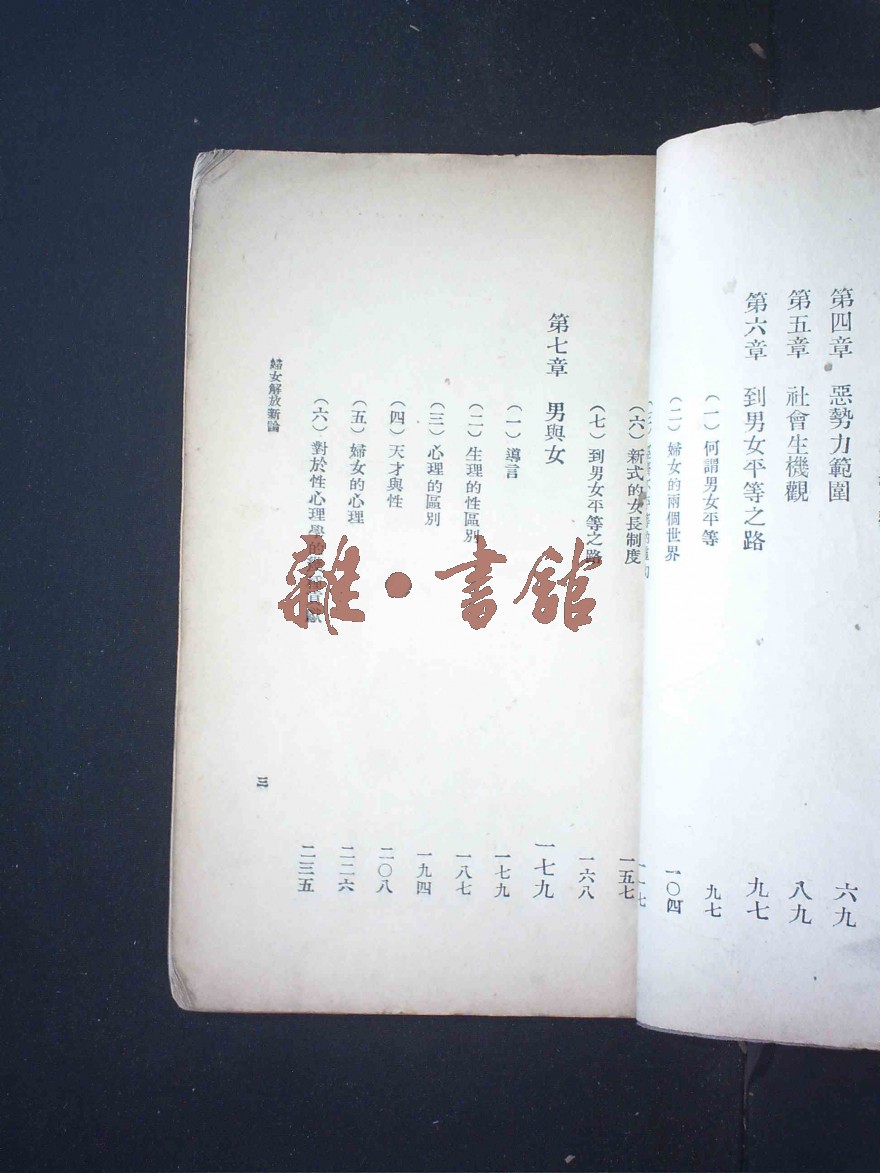 第四章　惡勢力範圍　六九
第五章　社會生機觀　八九
第六章　到男女平等之路　九七
（一）何謂男女平等　九七
（二）婦女的兩個世界　一〇四
（六）新式的女長制度　一五七
（七）到男女平等之路　一六八
第七章　男與女　一七九
（一）導言　一七九
（二）生理的性區別　一八七
（三）心理的區別　一九四
（四）天才與性　二〇八
（五）婦女的心理　二二六
（六）對於性心理學的　二三五
婦女解放新論　三
雜·書館